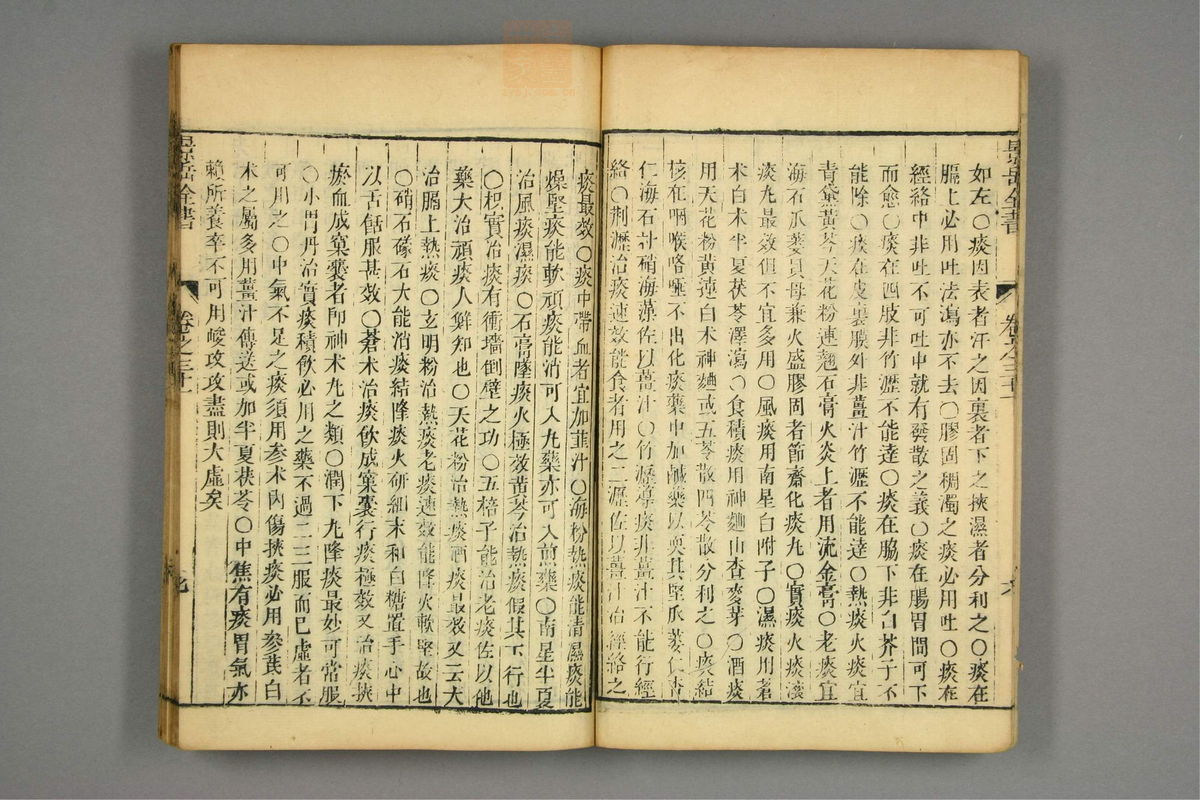 景岳全書
卷之三十一
如左○痰因表者汗之因裏者下之挾濕者分利之○痰在
膈上必用吐法瀉亦不去○膠固稠濁之痰必用吐○痰在
經絡中非吐不可吐中就有發散之義○痰在腸胃間可下
而愈○痰在四肢非竹瀝不能達○痰在脇下非白芥子不
能除○痰在皮裏膜外非薑汁竹瀝不能達○熱痰火痰宜
青黛黃芩天花粉連翹石膏火炎上者用流金膏○老痰宜
海石瓜蔞貝母兼火盛膠固者節齋化痰丸○實痰火痰滚
痰丸最效但不宜多用○風痰用南星白附子○濕痰用蒼
术白术半夏茯苓澤瀉○食積痰用神麯山查麥芽○酒痰
用天花粉黃連白术神麯或五苓散四苓散分利之○痰結
核在咽喉咯唾不出化痰藥中加鹹藥以耎其堅瓜蔞仁杏
仁海石朴硝海藻佐以薑汁○竹瀝導痰非薑汁不能行經
絡○荆瀝治痰速效能食者用之二瀝佐以薑汁治經絡之
痰最效○痰中帶血者宜加韮汁○海粉熱痰能清濕痰能
燥堅痰能軟頑痰能消可入丸藥亦可入煎藥○南星半夏
治風痰濕痰○石膏墜痰火極效黃芩治熱痰假其下行也
○枳實治痰有衝墻倒壁之功○五棓子能治老痰佐以他
藥大治頑痰人鮮知也○天花粉治熱痰酒痰最效又云大
治膈上熱痰○玄明粉治熱痰老痰速效能降火軟堅故也
○硝石礞石大能消痰結降痰火研細末和白糖置手心中
以舌餂服甚效○蒼术治痰飲成窠囊行痰極效又治痰挾
瘀血成窠囊者卽神术丸之類○潤下丸降痰最妙可常服
○小胃丹治實痰積飲必用之藥不過二三服而已虛者不
可用之○中氣不足之痰須用參术內傷挾痰必用參茋白
术之屬多用薑汁傳送或加半夏茯苓○中焦有痰胃氣亦
賴所養卒不可用峻攻攻盡則大虛矣
景岳全書
卷之三十一